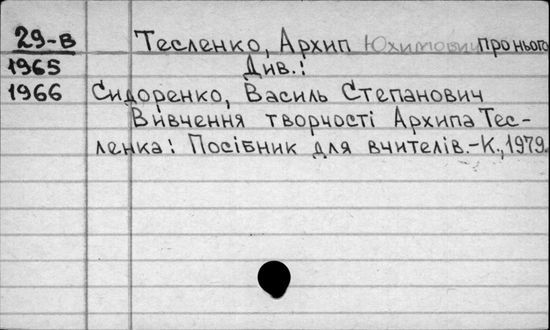 29-в Тесленко, Архип Юхимович про нього
1965 Див.:
1966 Сидоренко, Василь Степанович
Вивчення творчості Архипа Тес-
ленка: Посібник для вчителів.-К.,1979.